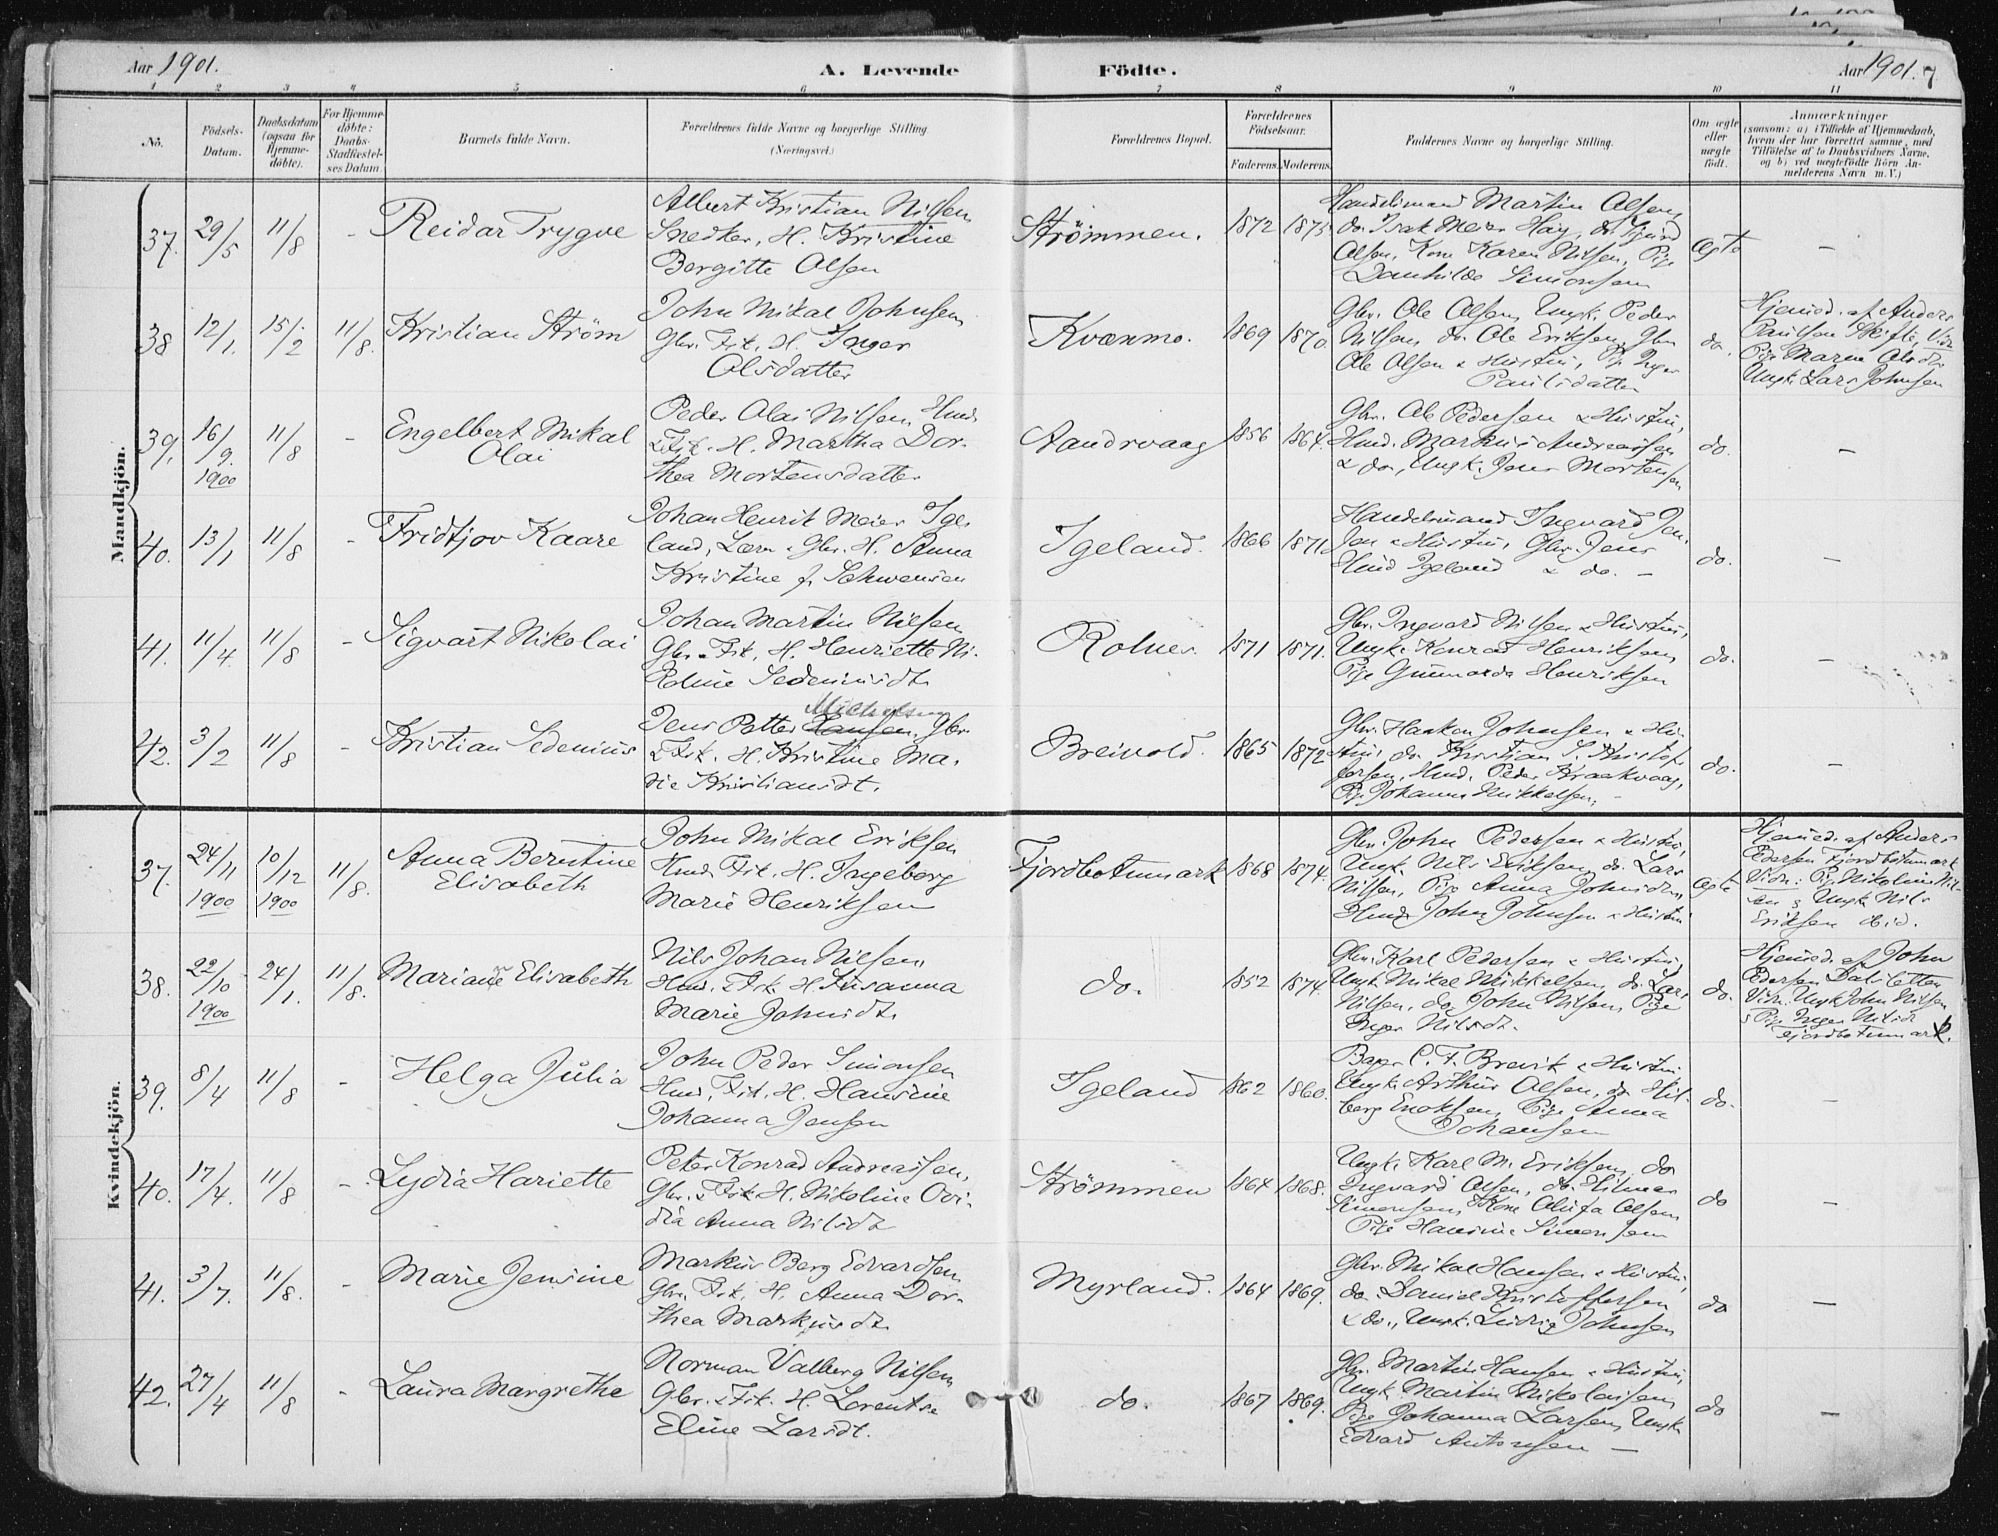 Aar 1901.
A. Levende
Födte.
Aar 1901. 7
1 2 3 4 5 6 7 8 9 10 11
No.
Födsels-
Datum.
Daabsdatum
(ogsaa for
Hjemme-
döbte).
For Hjemme-
döbte:
Daabs-
Stadfæstel-
ses Datum.
Barnets fulde Navn.
Forældrenes fulde Navne og borgerlige Stilling
(Næringsvei.)
Forældrenes Bopæl.
Forældrenes
Födselsaar.
Faderens. Moderens.
Faddernes Navne og borgerlige Stilling.
Om ægte
eller
uægte
födt.
Anmærkninger
(saasom: a) i Tilfælde af Hjemmedaab,
hvem der har forrettet samme, med
Tilföielse af to Daabsvidners Navne,
og b) ved uægtefödte Börn An-
melderens Navn m. V.)
Mandkjön.
37. 29/5 11/8 - Reidar Trygve
Albert Kristian Nilsen
Snedker, H. Kristine
Bergitte Olsen
Strømmen. 1872 1875
Handelsmand Martin Olsen,
do. Isak Meier Hay, do. Sjurd
Olsen, Kone Karen Nilsen, Pige
Danhilda Simonsen
Ægte -
38 12/1. 15/2 11/8. Kristian Strøm
John Mikal Johnsen
Gbr. Fisk. H. Inger
Olsdatter
Kvænmo. 1869 1870.
Gbr. Ole Olsen, Ungk. Peder
Nilsen, do. Ole Eriksen, Gbr.
Ole Olsen & Hustru, Pige Inger
Paulsdatter
do.
Hjemmed. af Anders
Paulsen, Vidn
Pige Maren Olsdtr
Ungk. Lars Johnsen
39. 16/9. 1900 11/8 - Engelbert Mikal
Olai
Peder Olai Nilsen, Hmd
& Fisk. H. Martha Dor-
thea Mortensdatter
Aandervaag 1856 1864.
Gbr. Ole Pedersen & Hustru,
Hmd. Markus Andreassen
& do., Ungk. Jens Mortensen
do. -
40. 13/1 11/8 - Fridtjov Kaare
Johan Henrik Meier Ige-
land, Lærer & Gbr. H. Anna
Kristine f. Schwensen
Igeland. 1866 1871
Handelsmand Ingvard Jen-
sen & Hustru, Gbr. Jens
Hmd Igeland & do. -
do. -
41. 11/4. 11/8 - Sigvart Nikolai
Johan Martin Nilsen
Gbr. & Fisk. H. Henriette Ni-
koline Sedeniusdt.
Rolnes. 1871 1871.
Gbr. Ingvard Nilsen & Hustru,
Ungk. Konrad Henriksen,
Pige Gunnarda Henriksen
do. -
42. 3/2 11/8 - Kristian Sedenius
Michelsen
Jens Petter Hansen, Gbr
& Fisk. H. Kristine Ma-
rie Kristiansdt.
Breivold. 1865 1872
Gbr. Haakon Johnsen & Hu-
stru, do. Kristian S. Kristof-
fersen, Hmd. Peder Kraakvaag,
Pige Johanna Mikkelsen.
do. -
Kvindekjön.
37. 24/11 1900 10/12 1900 11/8. Anna Berntine
Elisabeth
John Mikal Eriksen
Hmd. Fisk. H. Ingeborg
Marie Henriksen
Fjordbotnmark 1868 1874.
Gbr. John Pedersen & Hustru,
Ungk. Nils Eriksen, do. Lars
Nilsen, Pige Anna Johnsdtr.,
Hmd John Johnsen & Hustru
Ægte
Hjemmed. af Anders
Pedersen Fjordbotnmark
Vidn: Pige Nikoline Nil-
sen & Ungk. Nils
Eriksen ibid.
38. 22/10 1900 24/1. 11/8. Mariane Elisabeth
Nils Johan Nilsen,
Hmd. & Fisk. H. Susanna
Marie Johnsdt.
do. 1852 1874.
Gbr. Karl Pedersen & Hustru,
Ungk. Mikal Mikkelsen, do. Lars
Nilsen, do. John Nilsen, Pige
Inger Nilsdt.
do.
Hjemmed. af John
Pedersen
Vidn. Ungk John Nilsen
& Pige Inger Nilsdt
Fjordbotnmark.
39. 8/4 11/8 - Helga Julia
John Peder Simonsen
Hmd, Fisk. H. Hansine
Johanna Jensen
Igeland 1862 1860.
Bager C. F. Brevik & Hustru
Ungk. Arthur Olsen, do. Hil-
berg Enoksen, Pige Anna
Johansen
do. -
40. 17/4. 11/8 - Lydia Hariette
Peter Konrad Andreassen,
Gbr. & Fisk H. Nikoline Ovi-
dia Anna Nilsdt
Strømmen 1864 1868.
Ungk. Karl M. Eriksen, do
Ingvard Olsen, do. Hilmar
Simonsen, Kone Olufa Olsen
Pige Hansine Simonsen
do -
41. 3/7. 11/8. - Marie Jensine
Markus Berg Edvardsen
Gbr. Fisk. H. Anna Dor-
thea Markusdt.
Myrland. 1864 1869.
Gbr. Mikal Hansen & Hustru,
do. Daniel Kristoffersen
& do., Ungk. Ludvig Johnsen
do -
42. 27/4 11/8 - Laura Margrethe
Norman Valberg Nilsen
Gbr. & Fisk. H. Lorentse
Eline Larsdt.
do. 1867 1869.
Gbr. Martin Hansen & Hustru,
Ungk. Martin Nikolaisen,
Pige Johanna Larsen, Ungk
Edvard Antonsen -
do -